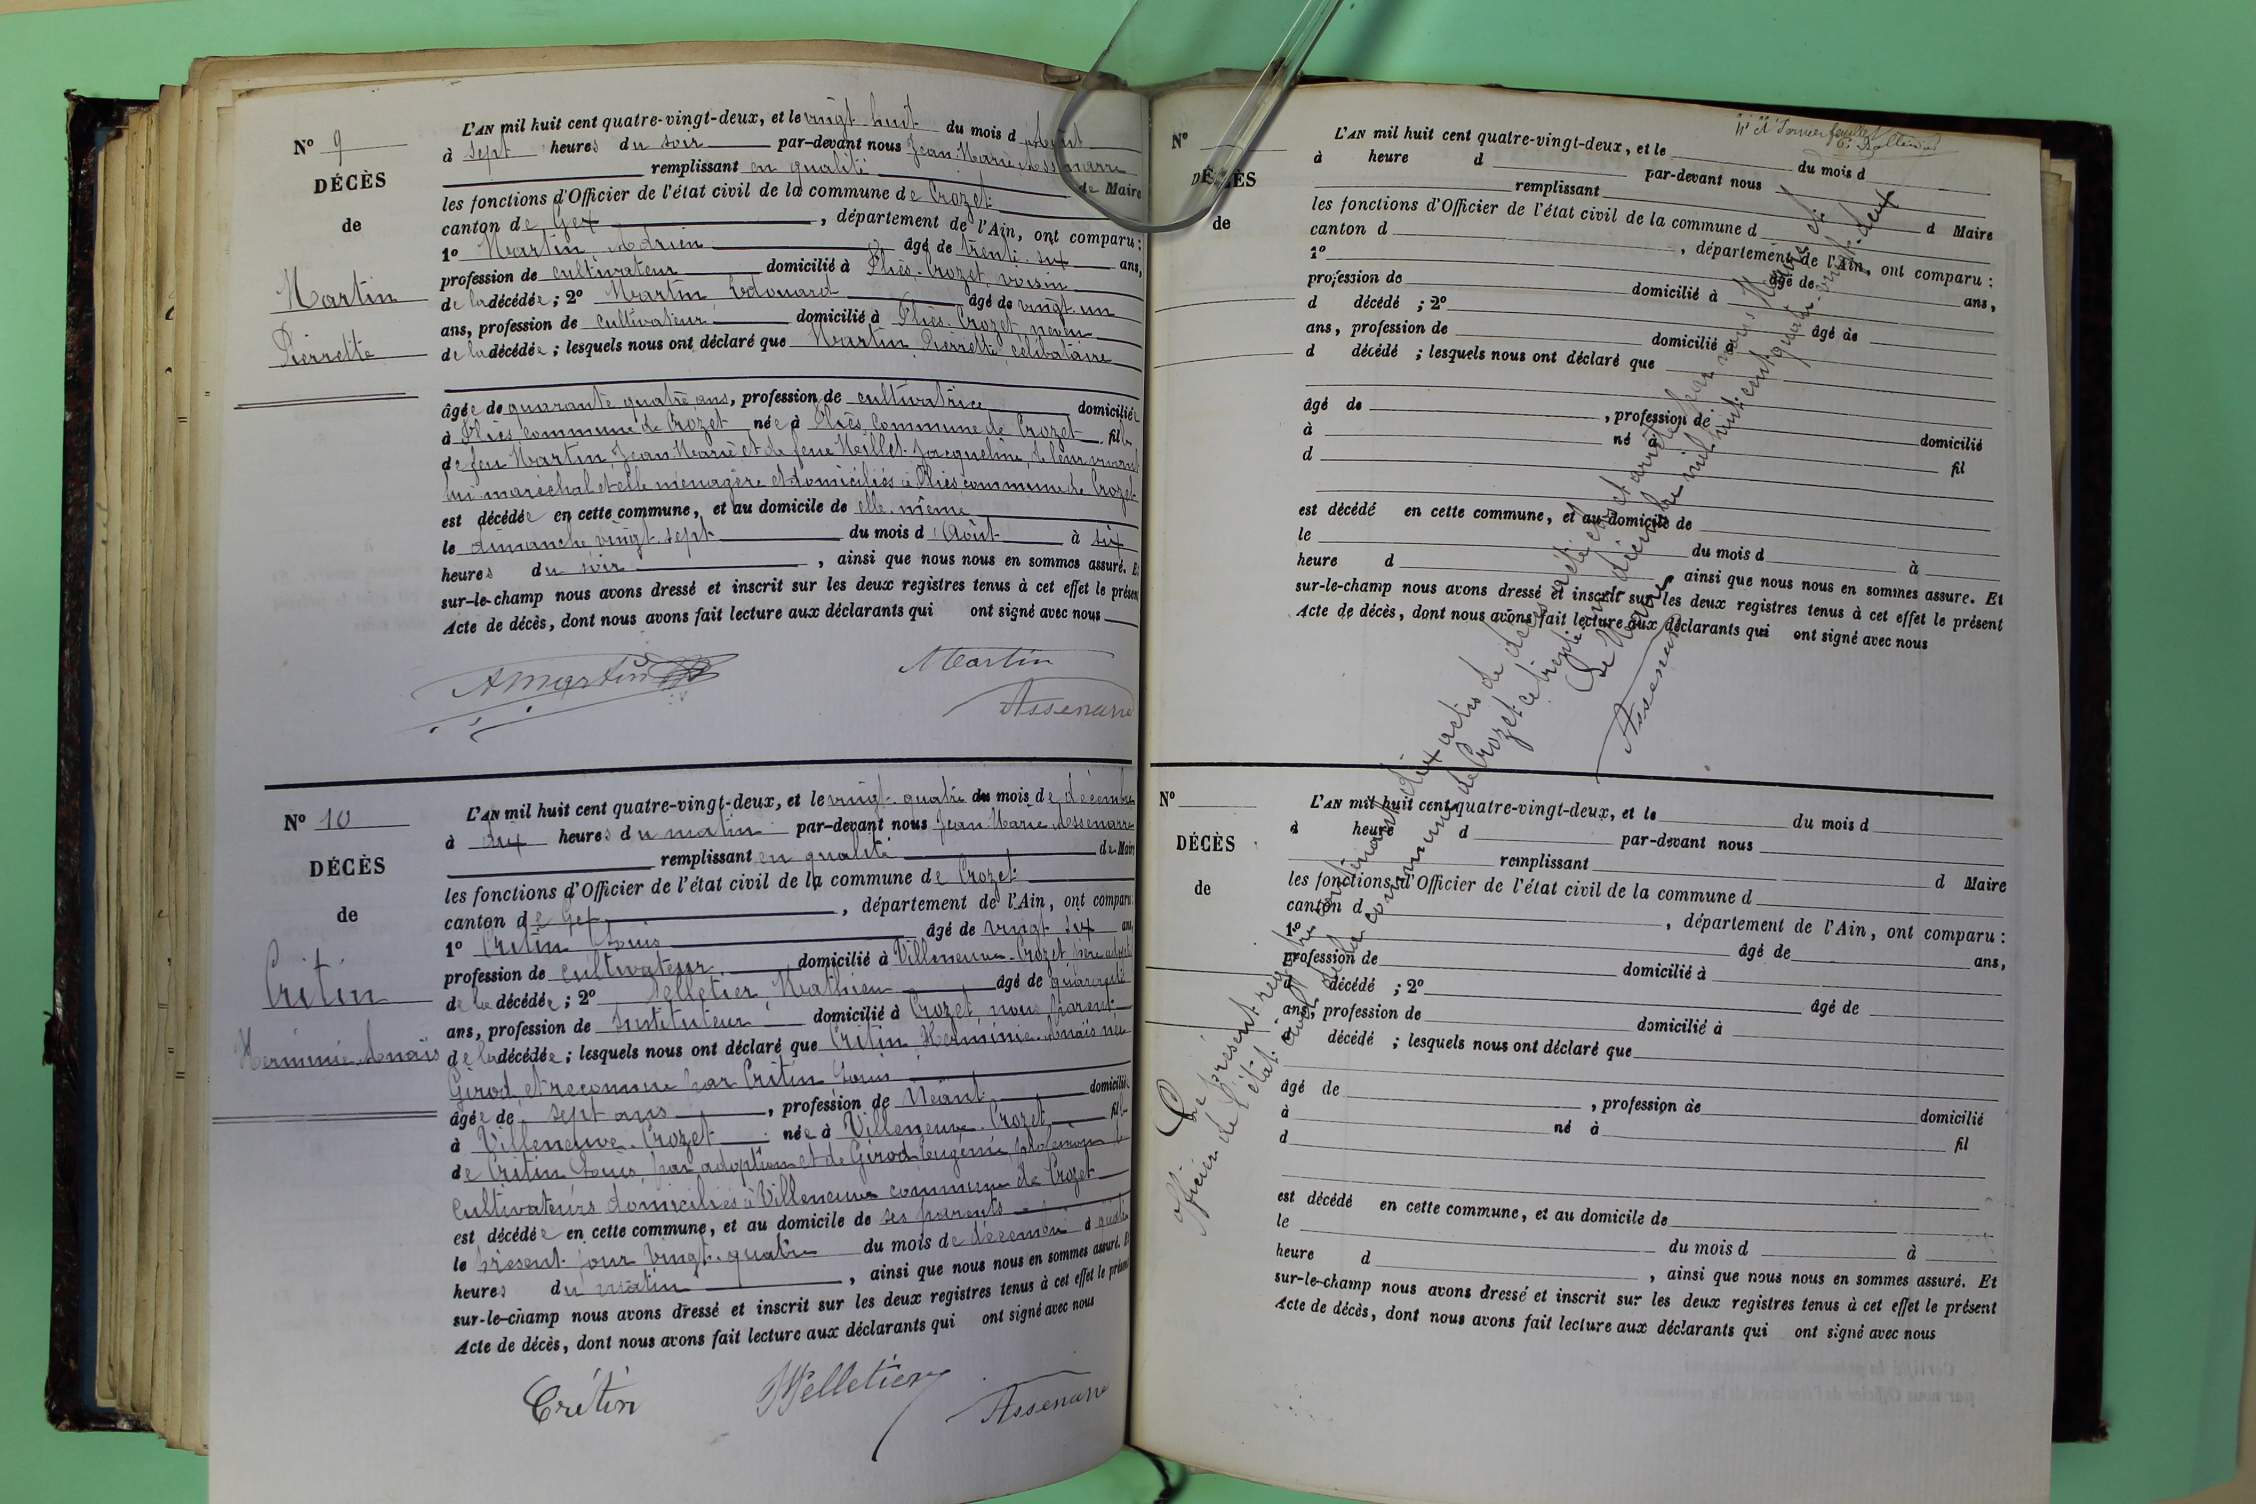 N° 9
DÉCÈS
de
Martin
Pierrette
L'AN mil huit cent quatre-vingt-deux, et le vingt huit du mois d'Août
à sept heures du soir par-devant nous Jean Marie Assenarre
remplissant en qualité de Maire
les fonctions d'Officier de l'état civil de la commune de Crozet
canton de Gex, département de l'Ain, ont comparu :
1° Martin Adrien âgé de trente-six ans,
profession de cultivateur domicilié à Fliès-Crozet, voisin
de la décédée ; 2° Martin Edouard âgé de vingt-un
ans, profession de cultivateur domicilié à Fliès-Crozet, neveu
de la décédée ; lesquels nous ont déclaré que Martin Pierrette célibataire
âgée de quarante quatre ans, profession de cultivatrice domiciliée
à Fliès commune de Crozet née à Fliès commune de Crozet fille
de feu Martin Jean-Marie et de feue Meillet Jacqueline, de leur vivant
lui maréchal et elle ménagère et domiciliés à Fliès commune de Crozet
est décédée en cette commune, et au domicile de elle-même
le dimanche vingt-sept du mois d'Août à six
heures du soir, ainsi que nous nous en sommes assuré. Et
sur-le-champ nous avons dressé et inscrit sur les deux registres tenus à cet effet le présent
Acte de décès, dont nous avons fait lecture aux déclarants qui ont signé avec nous
A Martin
Martin
Assenarre
N° 10
DÉCÈS
de
Critin
Herminie Anaïs
L'AN mil huit cent quatre-vingt-deux, et le vingt-quatre du mois de décembre
à dix heures du matin par-devant nous Jean-Marie Assenarre
remplissant en qualité de Maire
les fonctions d'Officier de l'état civil de la commune de Crozet
canton de Gex, département de l'Ain, ont comparu
1° Critin Louis âgé de vingt-six ans,
profession de cultivateur domicilié à Villeneuve-Crozet, père adoptif
de la décédée ; 2° Pelletier Mathieu âgé de quarante
ans, profession de Instituteur domicilié à Crozet, non parent
de la décédée ; lesquels nous ont déclaré que Critin Herminie-Anaïs née
Girod et reconnue par Critin Louis
âgée de sept ans, profession de Néant domiciliée
à Villeneuve-Crozet née à Villeneuve-Crozet fille
de Critin Louis par adoption et de Girod Eugénie
cultivateurs domiciliés à Villeneuve commune de Crozet
est décédée en cette commune, et au domicile de ses parents
le présent jour vingt-quatre du mois de décembre à quatre
heures du matin, ainsi que nous nous en sommes assuré. Et
sur-le-champ nous avons dressé et inscrit sur les deux registres tenus à cet effet le présent
Acte de décès, dont nous avons fait lecture aux déclarants qui ont signé avec nous
Crétin
MPelletier
Assenarre
dernier feuillet
N°
DÉCÈS
de
L'AN mil huit cent quatre-vingt-deux, et le du mois d
à heure d par-devant nous
remplissant d Maire
les fonctions d'Officier de l'état civil de la commune d
canton d , département de l'Ain, ont comparu :
1° âgé de ans,
profession de domicilié à
d décédé ; 2° âgé de
ans, profession de domicilié à
d décédé ; lesquels nous ont déclaré que
âgé de , profession de domicilié
à né à fil
d
est décédé en cette commune, et au domicile de
le du mois d à
heure d , ainsi que nous nous en sommes assuré. Et
sur-le-champ nous avons dressé et inscrit sur les deux registres tenus à cet effet le présent
Acte de décès, dont nous avons fait lecture aux déclarants qui ont signé avec nous
Le présent registre contenant dix actes de décès a été clos et arrêté par nous Maire et
officier de l'état civil de la commune de Crozet ce trente un décembre mil huit cent quatre-vingt-deux
Le Maire,
Assenarre
N°
DÉCÈS
de
L'AN mil huit cent quatre-vingt-deux, et le du mois d
à heure d par-devant nous
remplissant d Maire
les fonctions d'Officier de l'état civil de la commune d
canton d , département de l'Ain, ont comparu :
1° âgé de ans,
profession de domicilié à
d décédé ; 2° âgé de
ans, profession de domicilié à
d décédé ; lesquels nous ont déclaré que
âgé de , profession de domicilié
à né à
d fil
est décédé en cette commune, et au domicile de
le du mois d à
heure d , ainsi que nous nous en sommes assuré. Et
sur-le-champ nous avons dressé et inscrit sur les deux registres tenus à cet effet le présent
Acte de décès, dont nous avons fait lecture aux déclarants qui ont signé avec nous